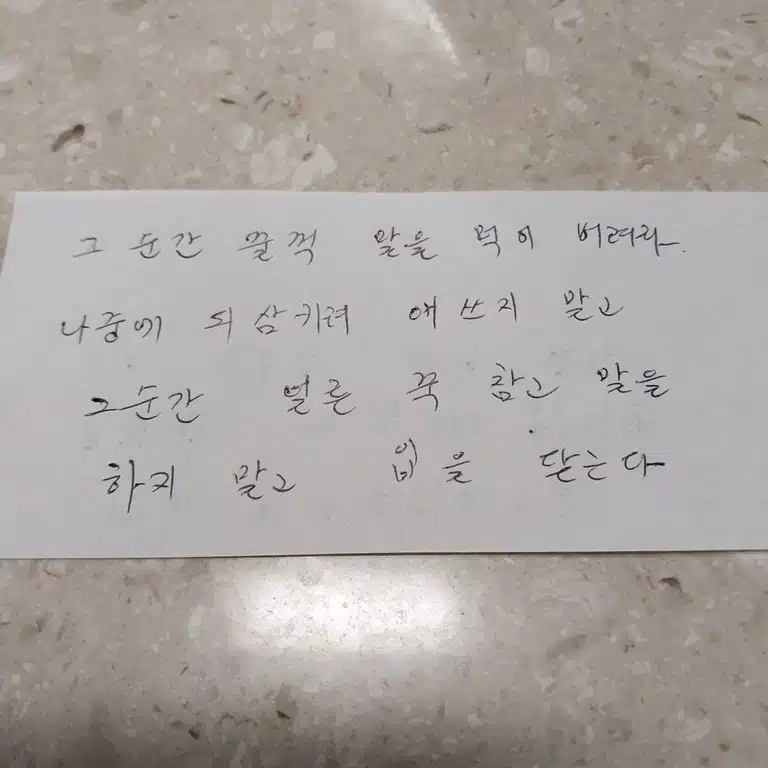 그 순간 꿀꺽 말을 먹어 버려라.
나중에 되삼키려 애쓰지 말고
그순간 얼른 꾹 참고 말을
하지 말고 입을 닫는다